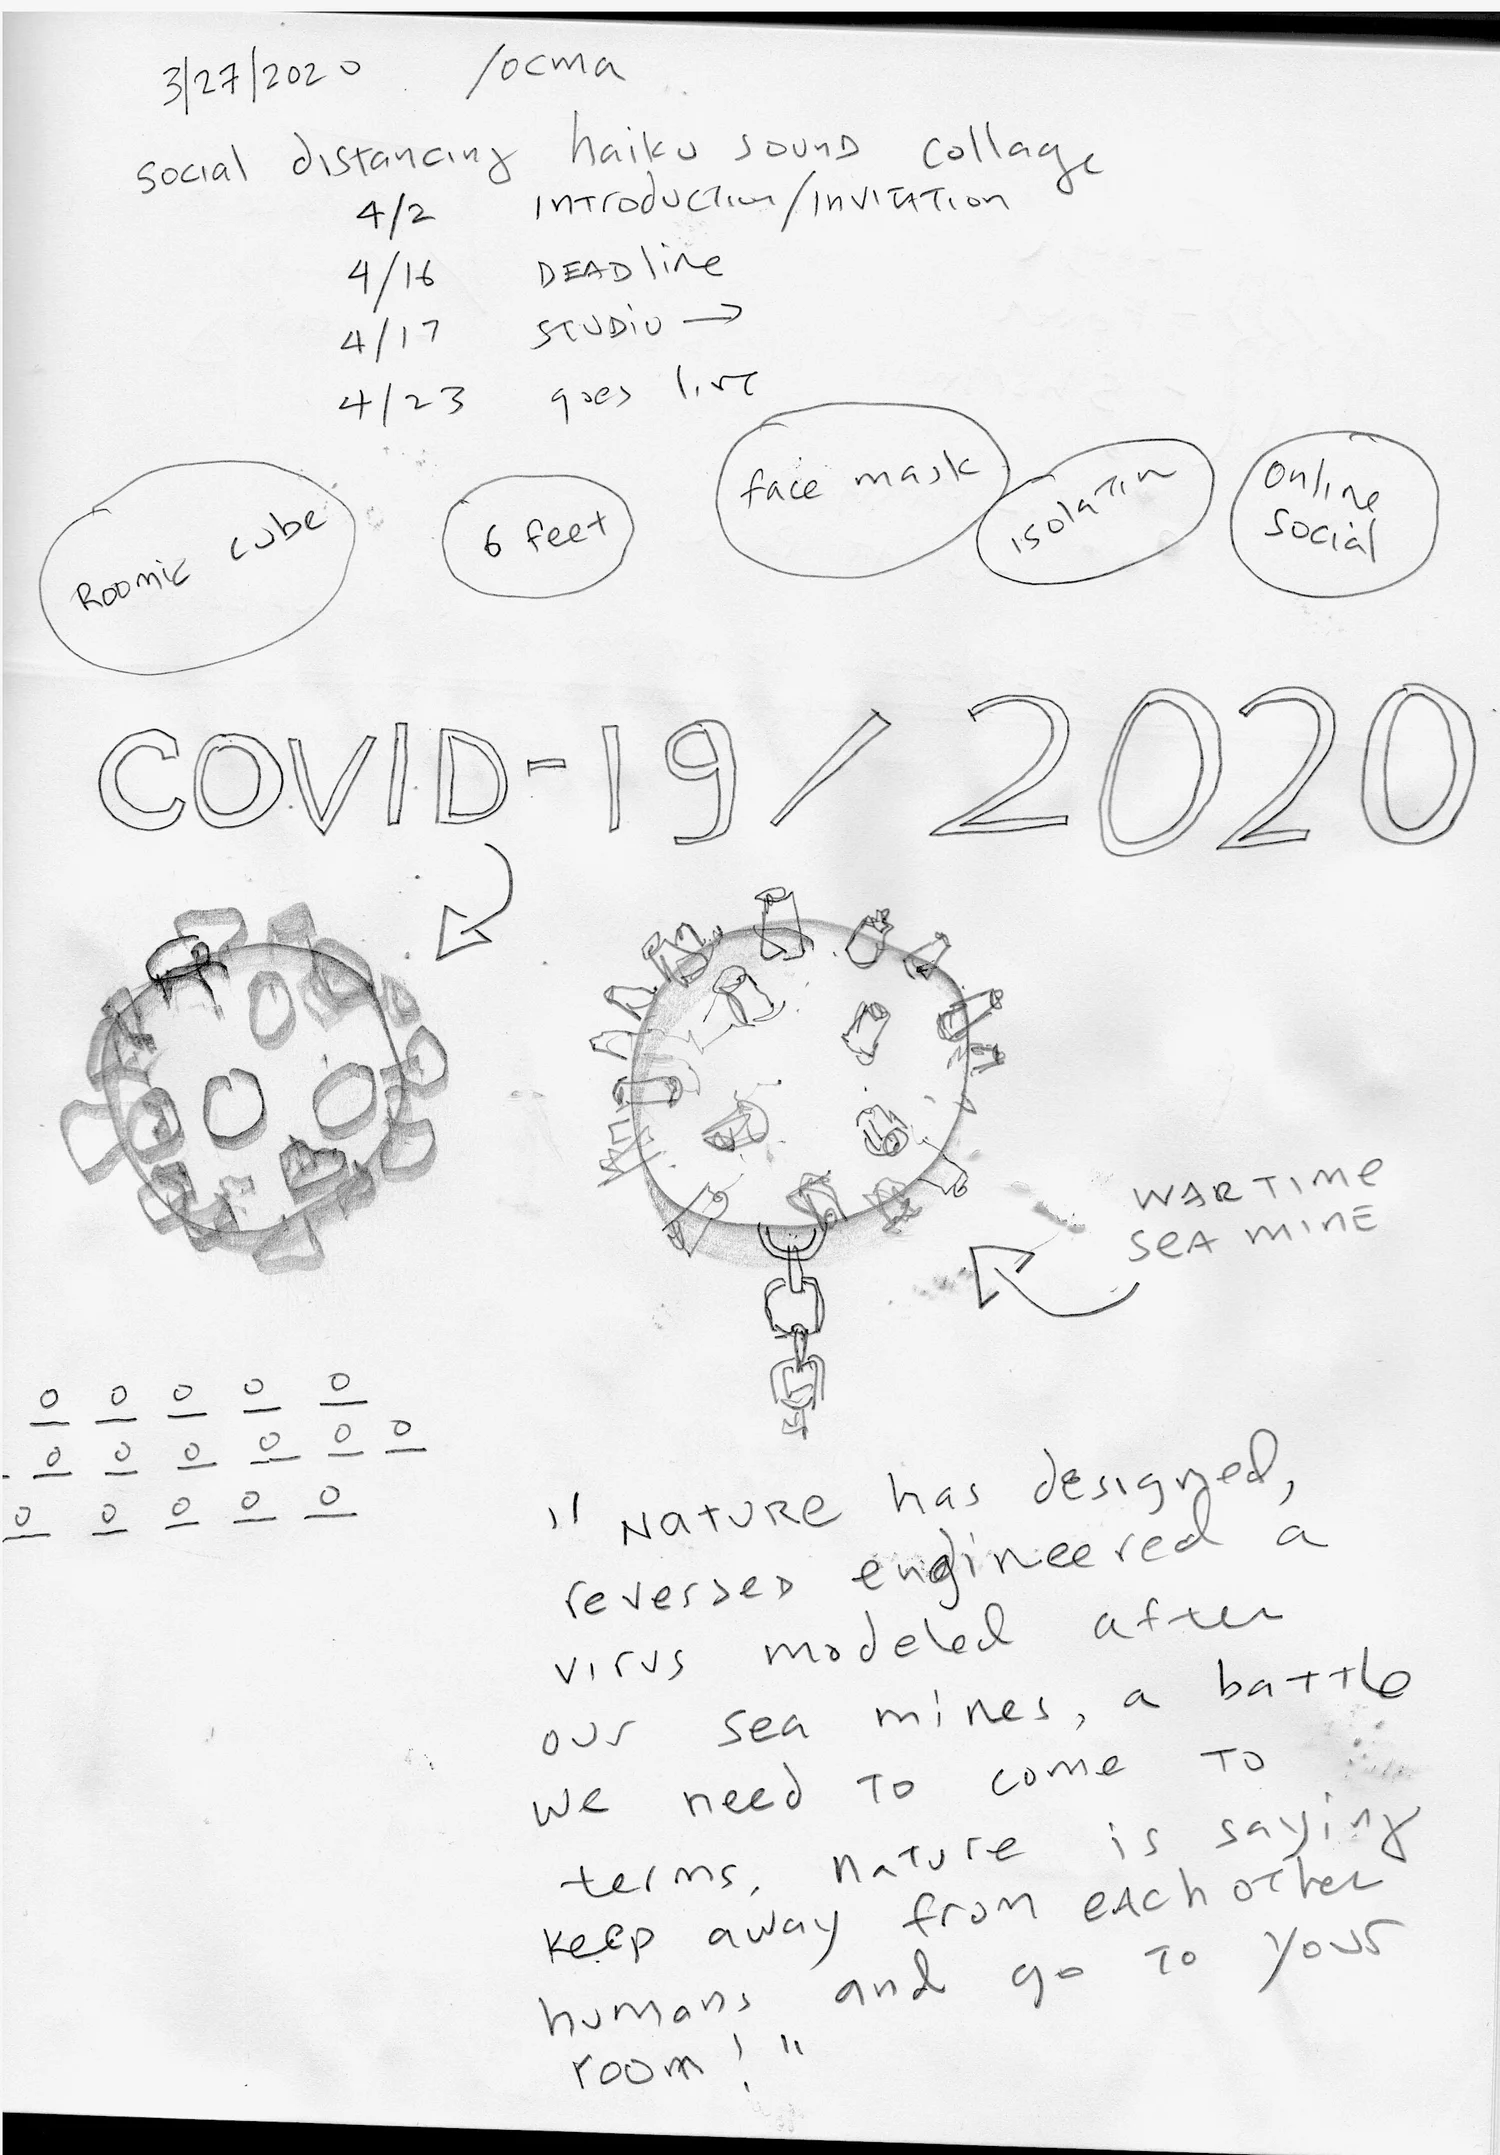 3/27/2020 /ocma
social distancing haiku sound collage
4/2 introduction/invitation
4/16 DEADline
4/17 STUDIO →
4/23 goes live
Roomic cube
6 feet
face mask
isolation
online
social
COVID-19/2020
WARTIME
SEA MINE
"Nature has designed,
reversed engineered a
virus modeled after
our sea mines, a battle
we need to come to
terms, nature is saying
keep away from each other
humans and go to your
room!"